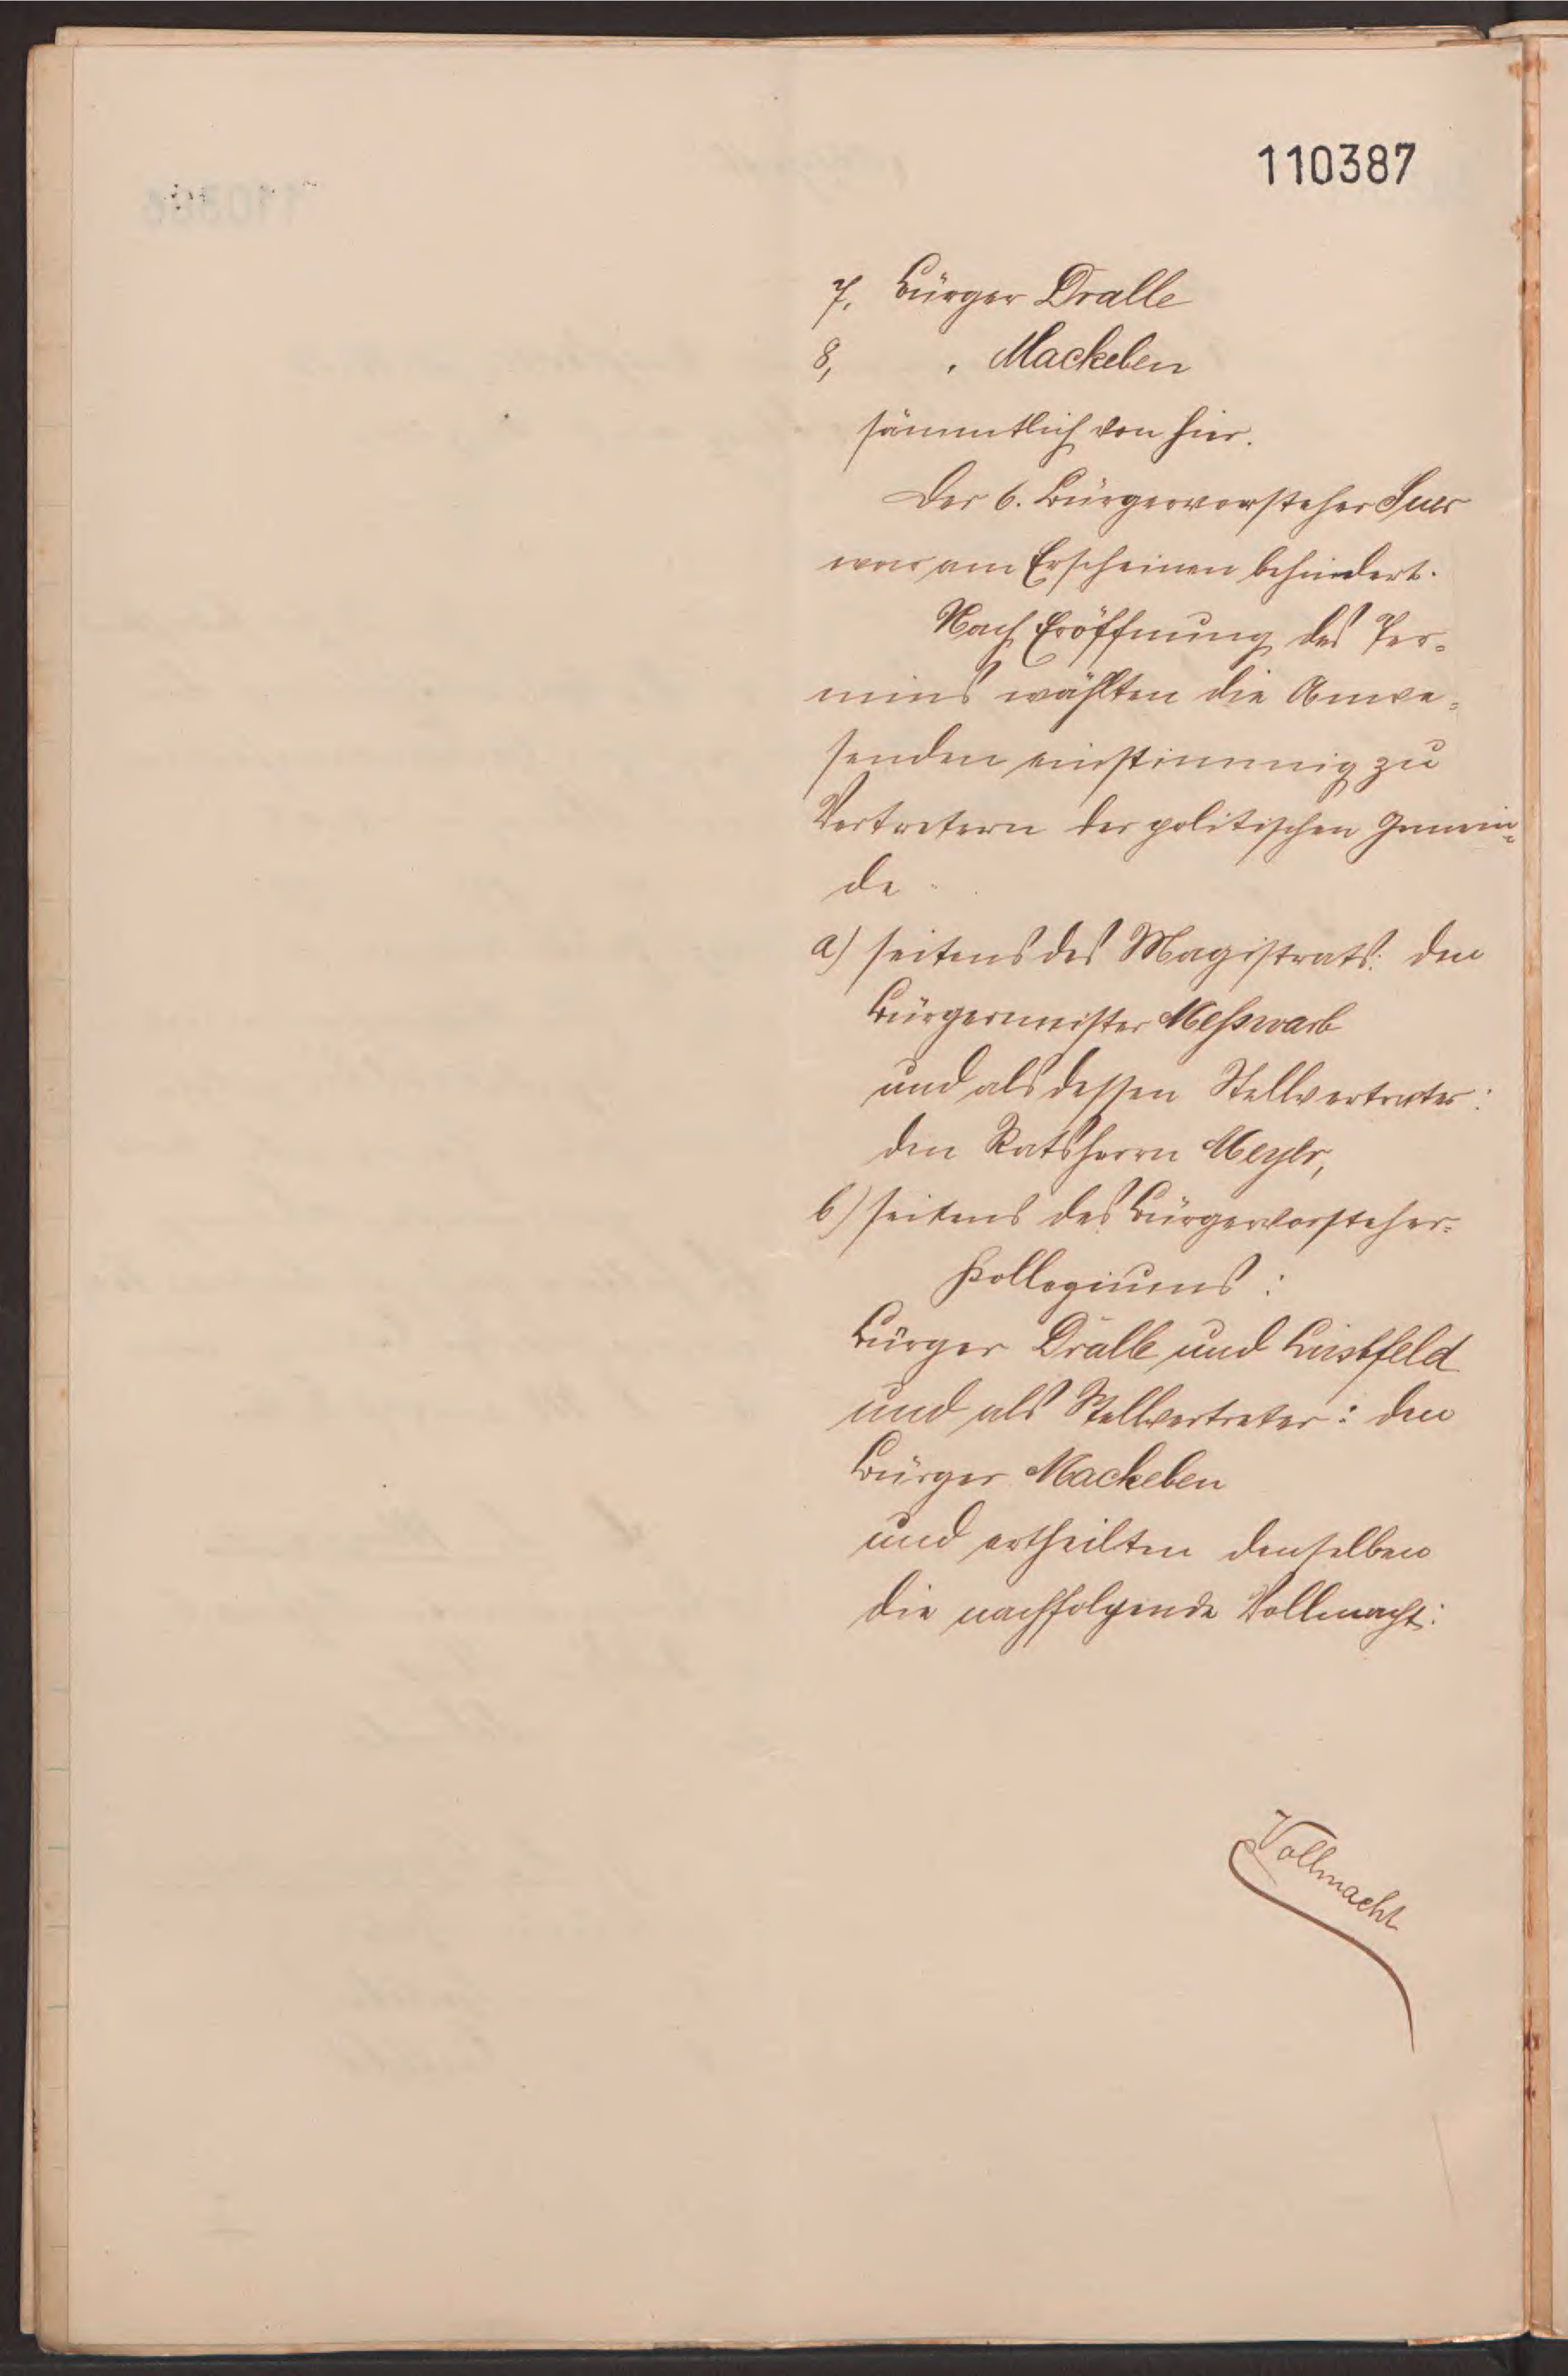 110387
7. Bürger Dralle
8, " Mackeben
sämmtlich von hier.
Der 6. Bürgervorsteher Suer
war am Erscheinen behindert.
Nach Eröffnung des Ter-
mins wählten die Anwe-
senden einstimmig zu
Vertretern der politischen Gemein-
de
a) seitens des Magistrats: den
Bürgermeister Meßwarb
und als dessen Stellvertreter:
den Ratsherrn Meyer,
b) seitens des Bürgervorsteher-
Kollegiums:
Bürger Dralle und Listfeld
und als Stellvertreter: den
Bürger Mackeben
und ertheilten denselben
die nachfolgende Vollmacht:
Vollmacht